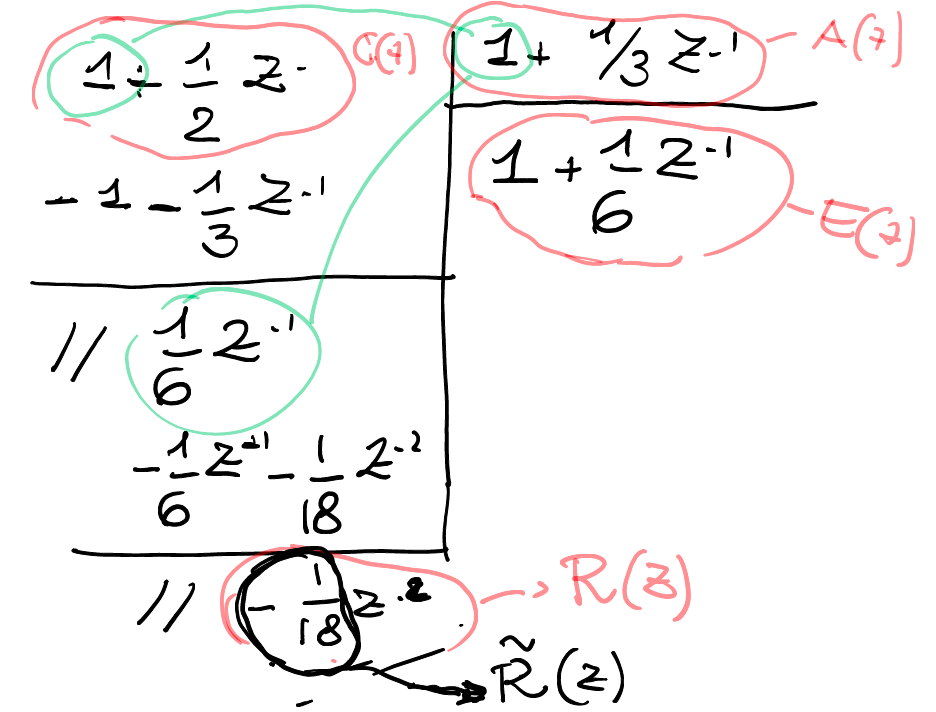 1 + 1/2 z⁻ C(z) 1 + 1/3 z⁻¹ - A(z)
- 1 - 1/3 z⁻¹ 1 + 1/6 z⁻¹ - E(z)
// 1/6 z⁻¹
- 1/6 z⁻¹ - 1/18 z⁻²
// - 1/18 z⁻² → R(z)
R̃(z)